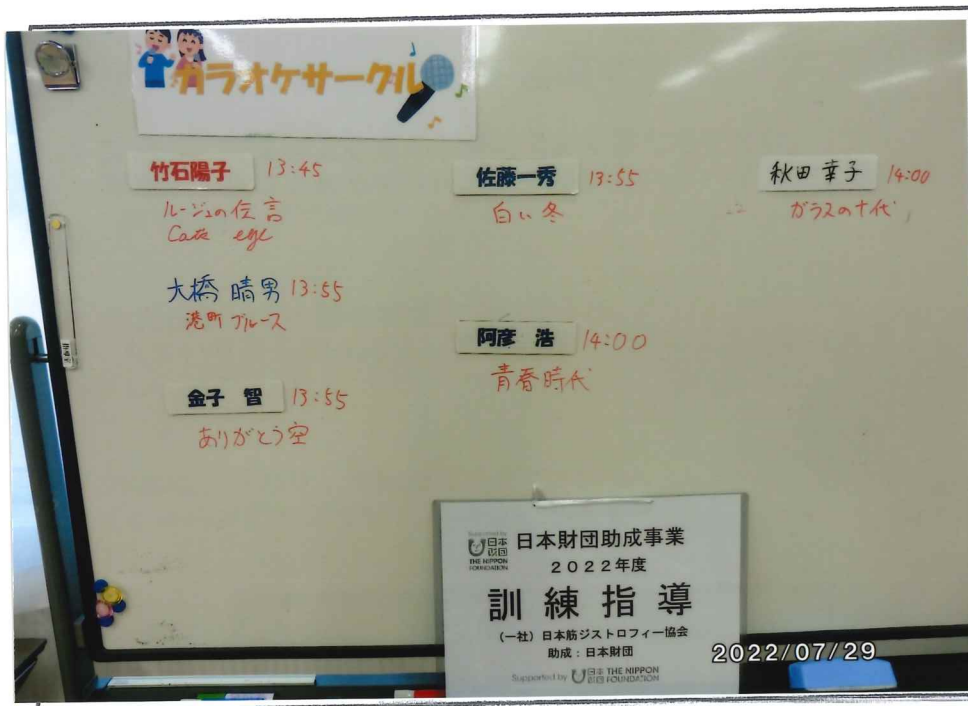 カラオケサークル
竹石陽子 13:45
ルージュの伝言
Cat's eye
大橋晴男 13:55
港町ブルース
金子 智 13:55
ありがとう空
佐藤一秀 13:55
白い冬
阿彦 浩 14:00
青春時代
秋田幸子 14:00
ガラスの十代
Supported by
日本財団
THE NIPPON
FOUNDATION
日本財団助成事業
2022年度
訓練指導
(一社)日本筋ジストロフィー協会
助成:日本財団
Supported by 日本財団 THE NIPPON FOUNDATION
2022/07/29